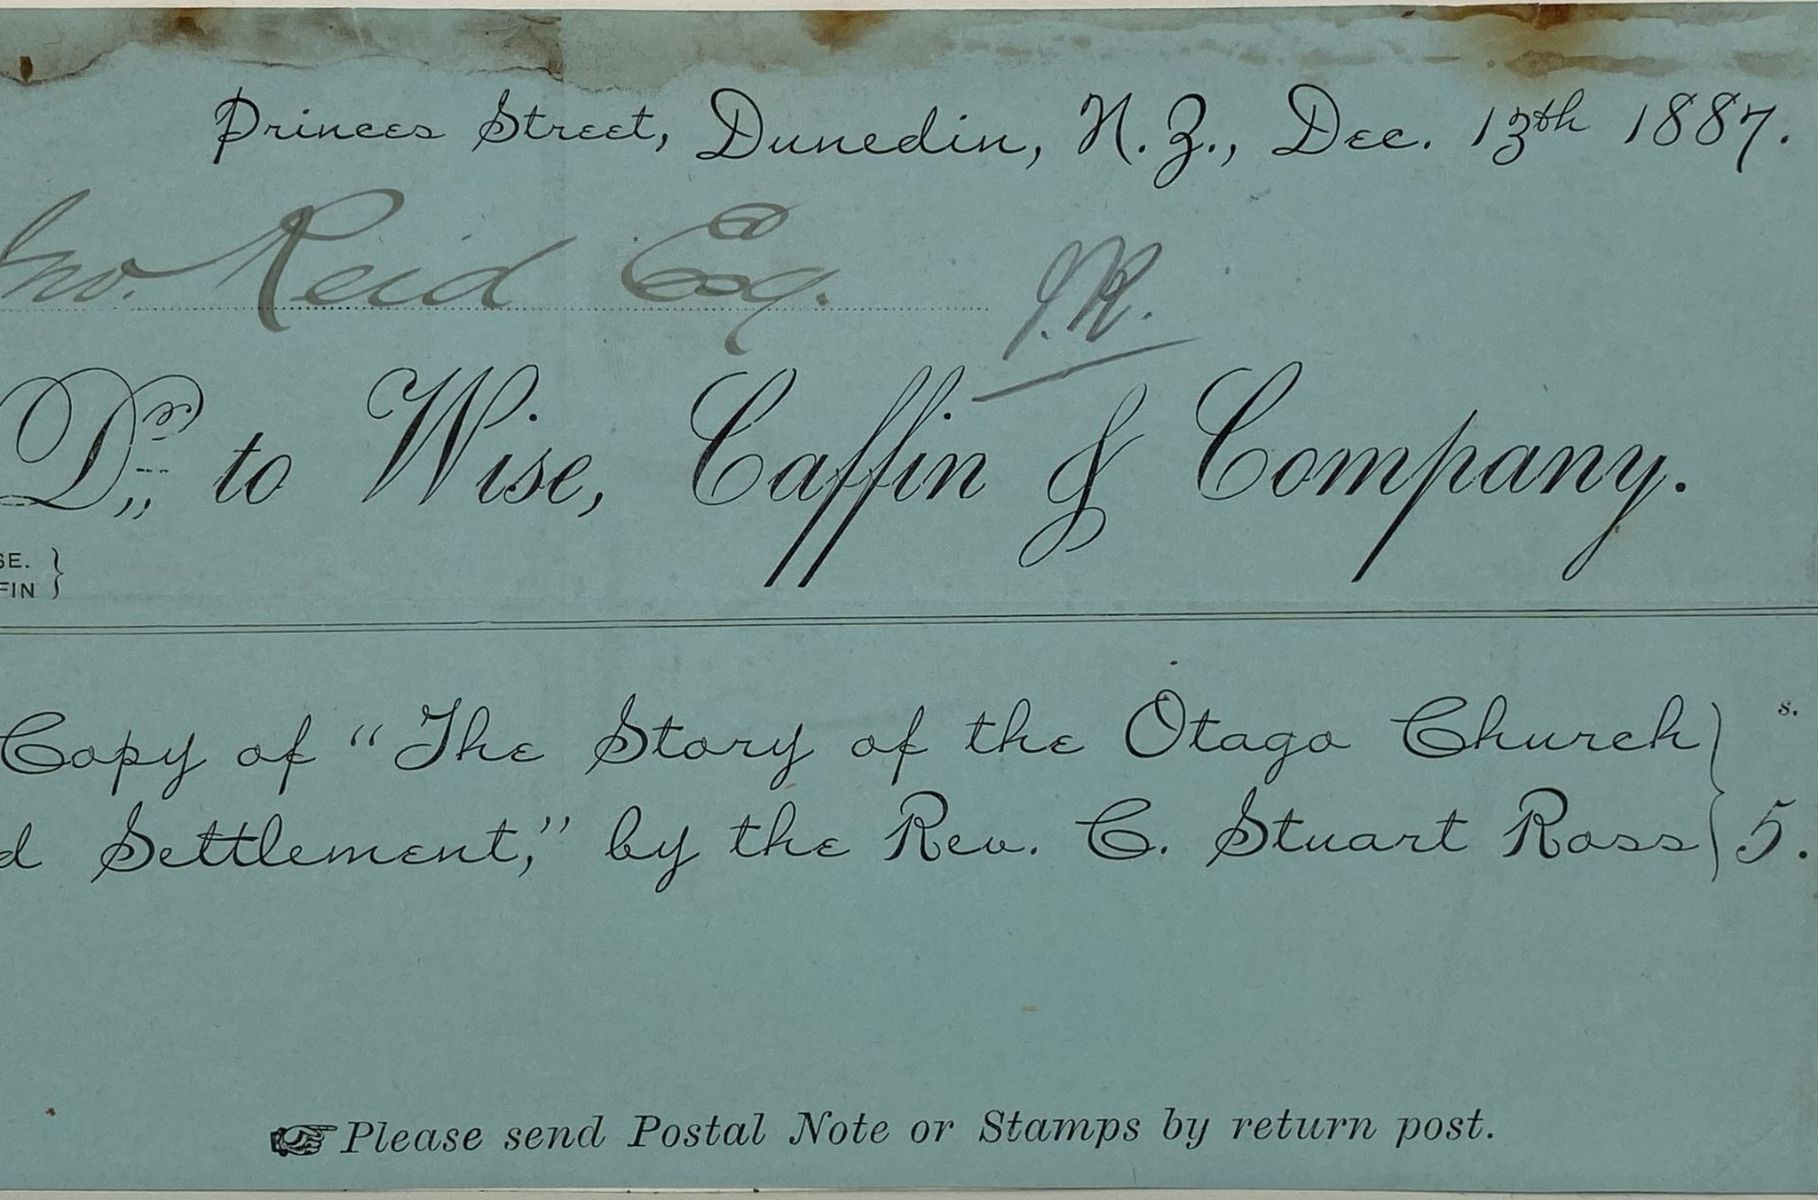 Princes Street, Dunedin, N.Z., Dec. 13th 1887.
Jno. Reid Esq.
J.R.
Dr. to Wise, Caffin & Company.
SE.
FIN
Copy of “The Story of the Otago Church
d Settlement,” by the Rev. C. Stuart Ross
s.
5.
☞ Please send Postal Note or Stamps by return post.